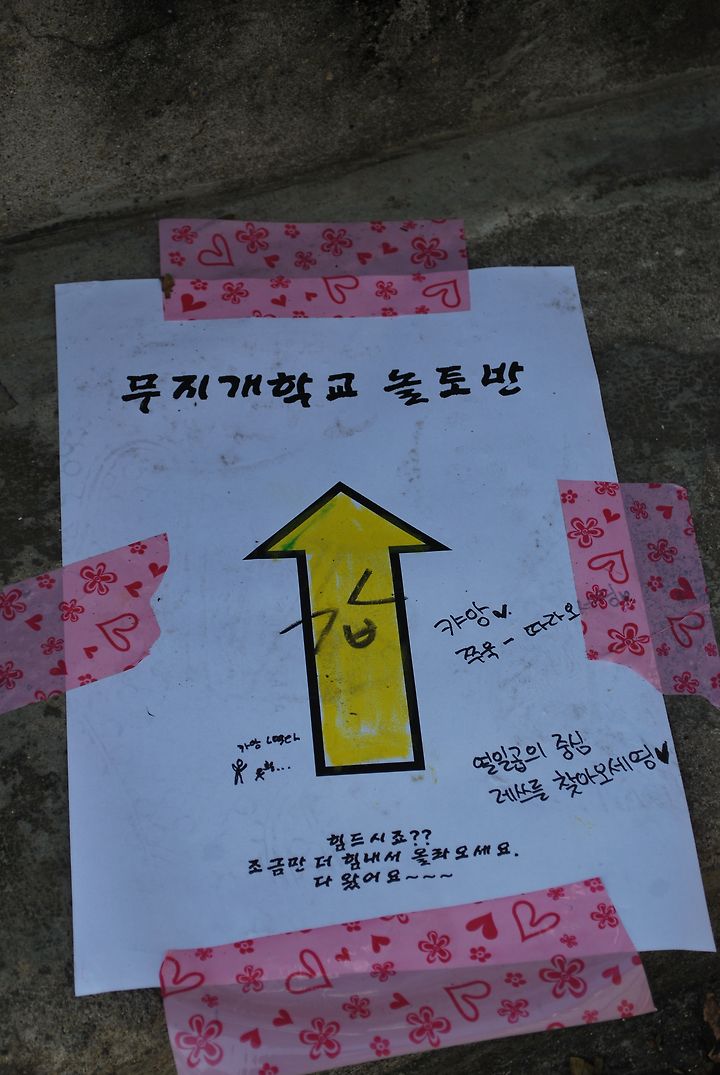 무지개학교 놀토반
갑
캬앙♥
쭈욱 - 따라오
열일곱의 중심
레쓰를 찾아오세영♥
힘드시죠??
조금만 더 힘내서 올라오세요.
다 왔어요~~~